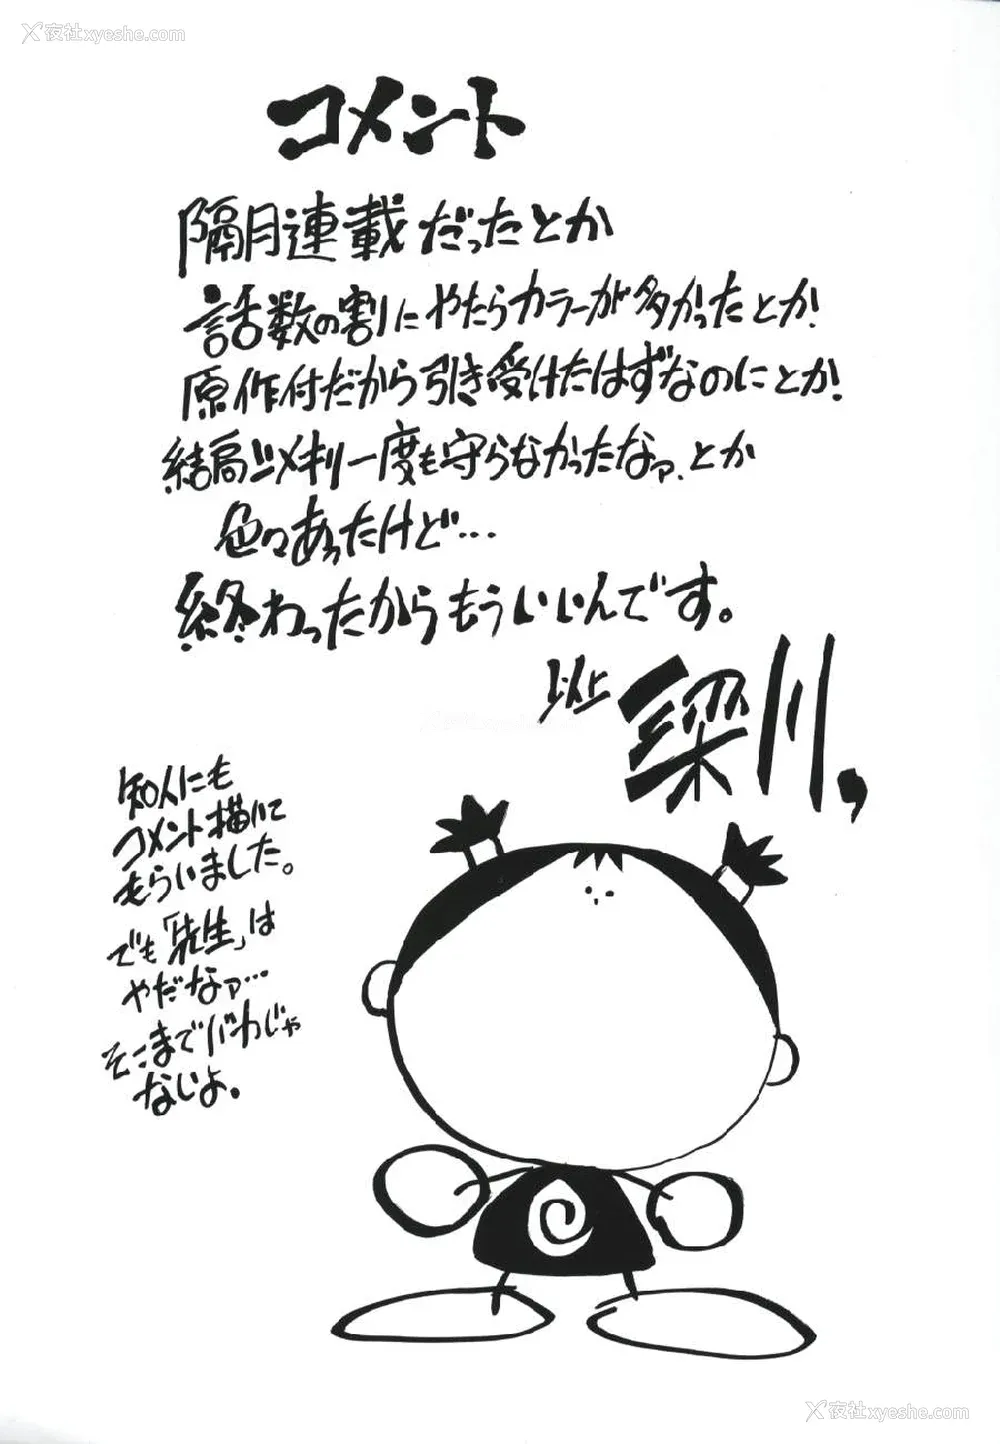 夜社xyeshe.com
コメント
隔月連載だったとか
話数の割にやたらカラーが多かったとか!
原作付だから引き受けたはずなのにとか!
結局〆メキリ一度も守らなかったなァ、とか
色々あったけど…
終わったからもういいんです。
以上 深川,
知人にも
コメント描いて
もらいました。
でも「先生」は
やだなァ…
そこまでバカじゃ
なじよ。
夜社xyeshe.com